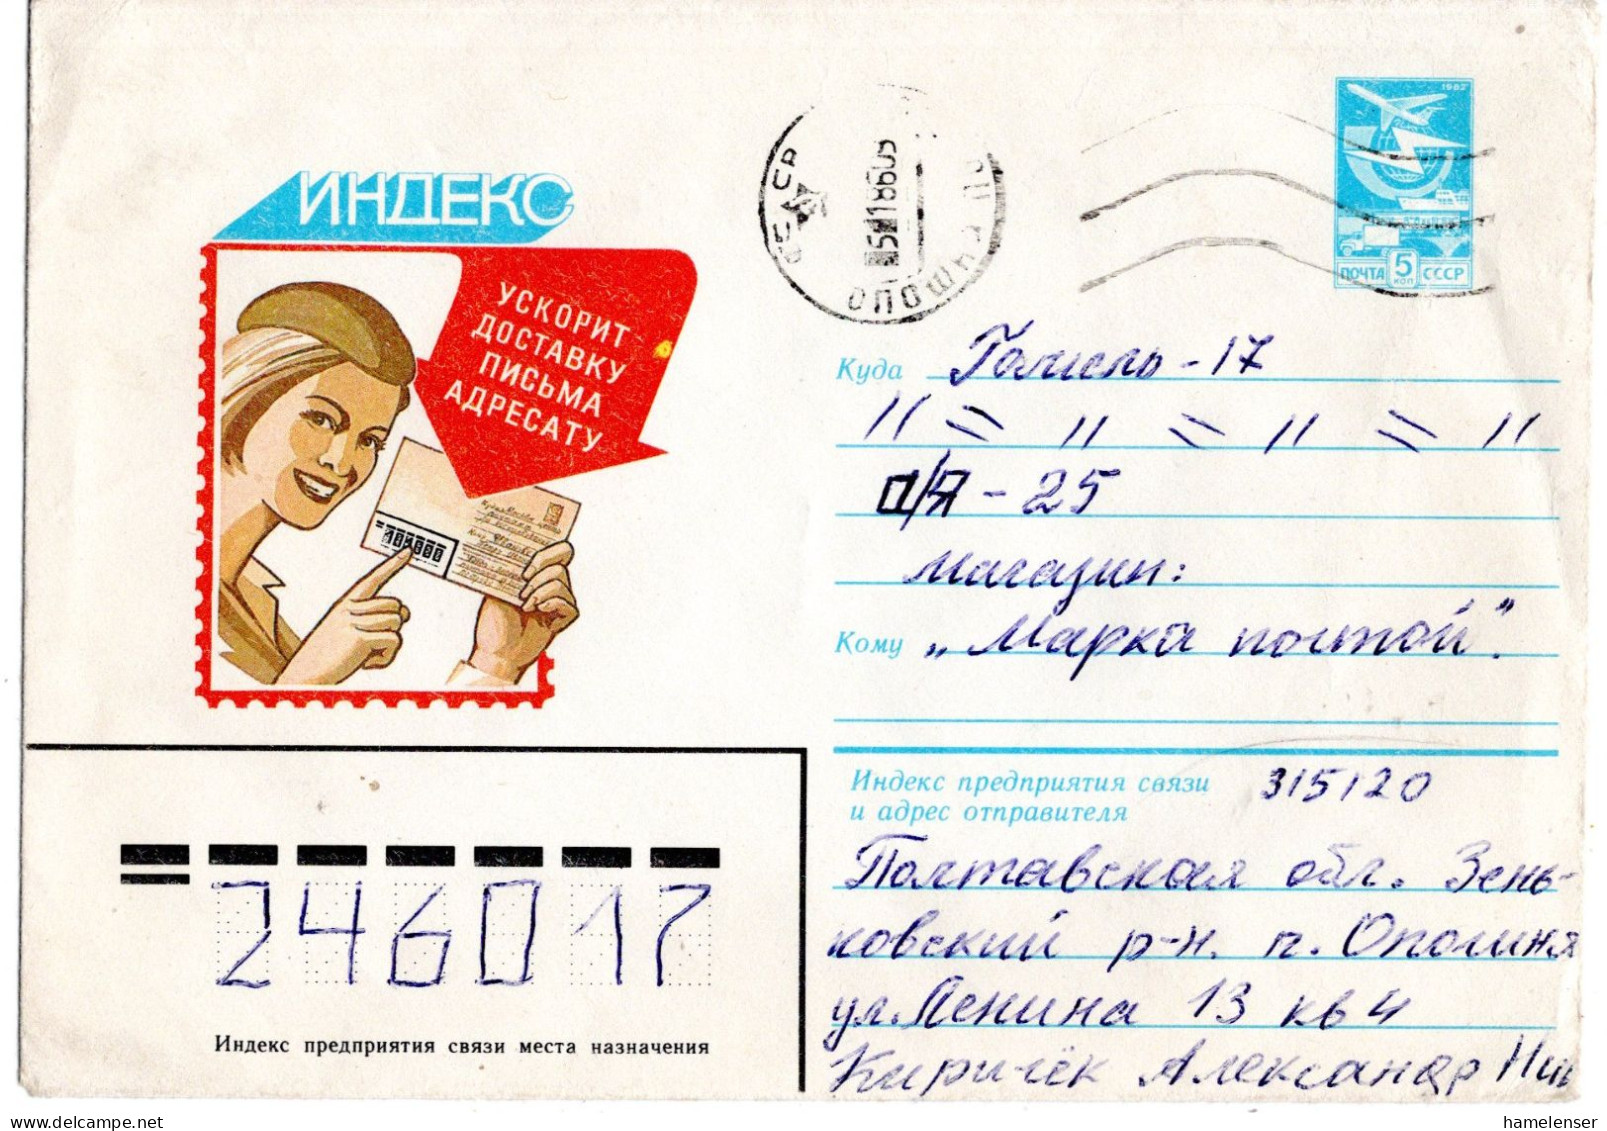 ИНДЕКС
УСКОРИТ
ДОСТАВКУ
ПИСЬМА
АДРЕСАТУ
1982
ПОЧТА 5 КОП СССР
Куда Гомель - 17
П/Я - 25
Магазин:
Кому „Марка почтой".
Индекс предприятия связи 315120
и адрес отправителя
Полтавская обл. Зень-
ковский р-н. п. Опошня
ул. Ленина 13 кв 4
Киричёк Александр Ник
246017
Индекс предприятия связи места назначения
hamelenser